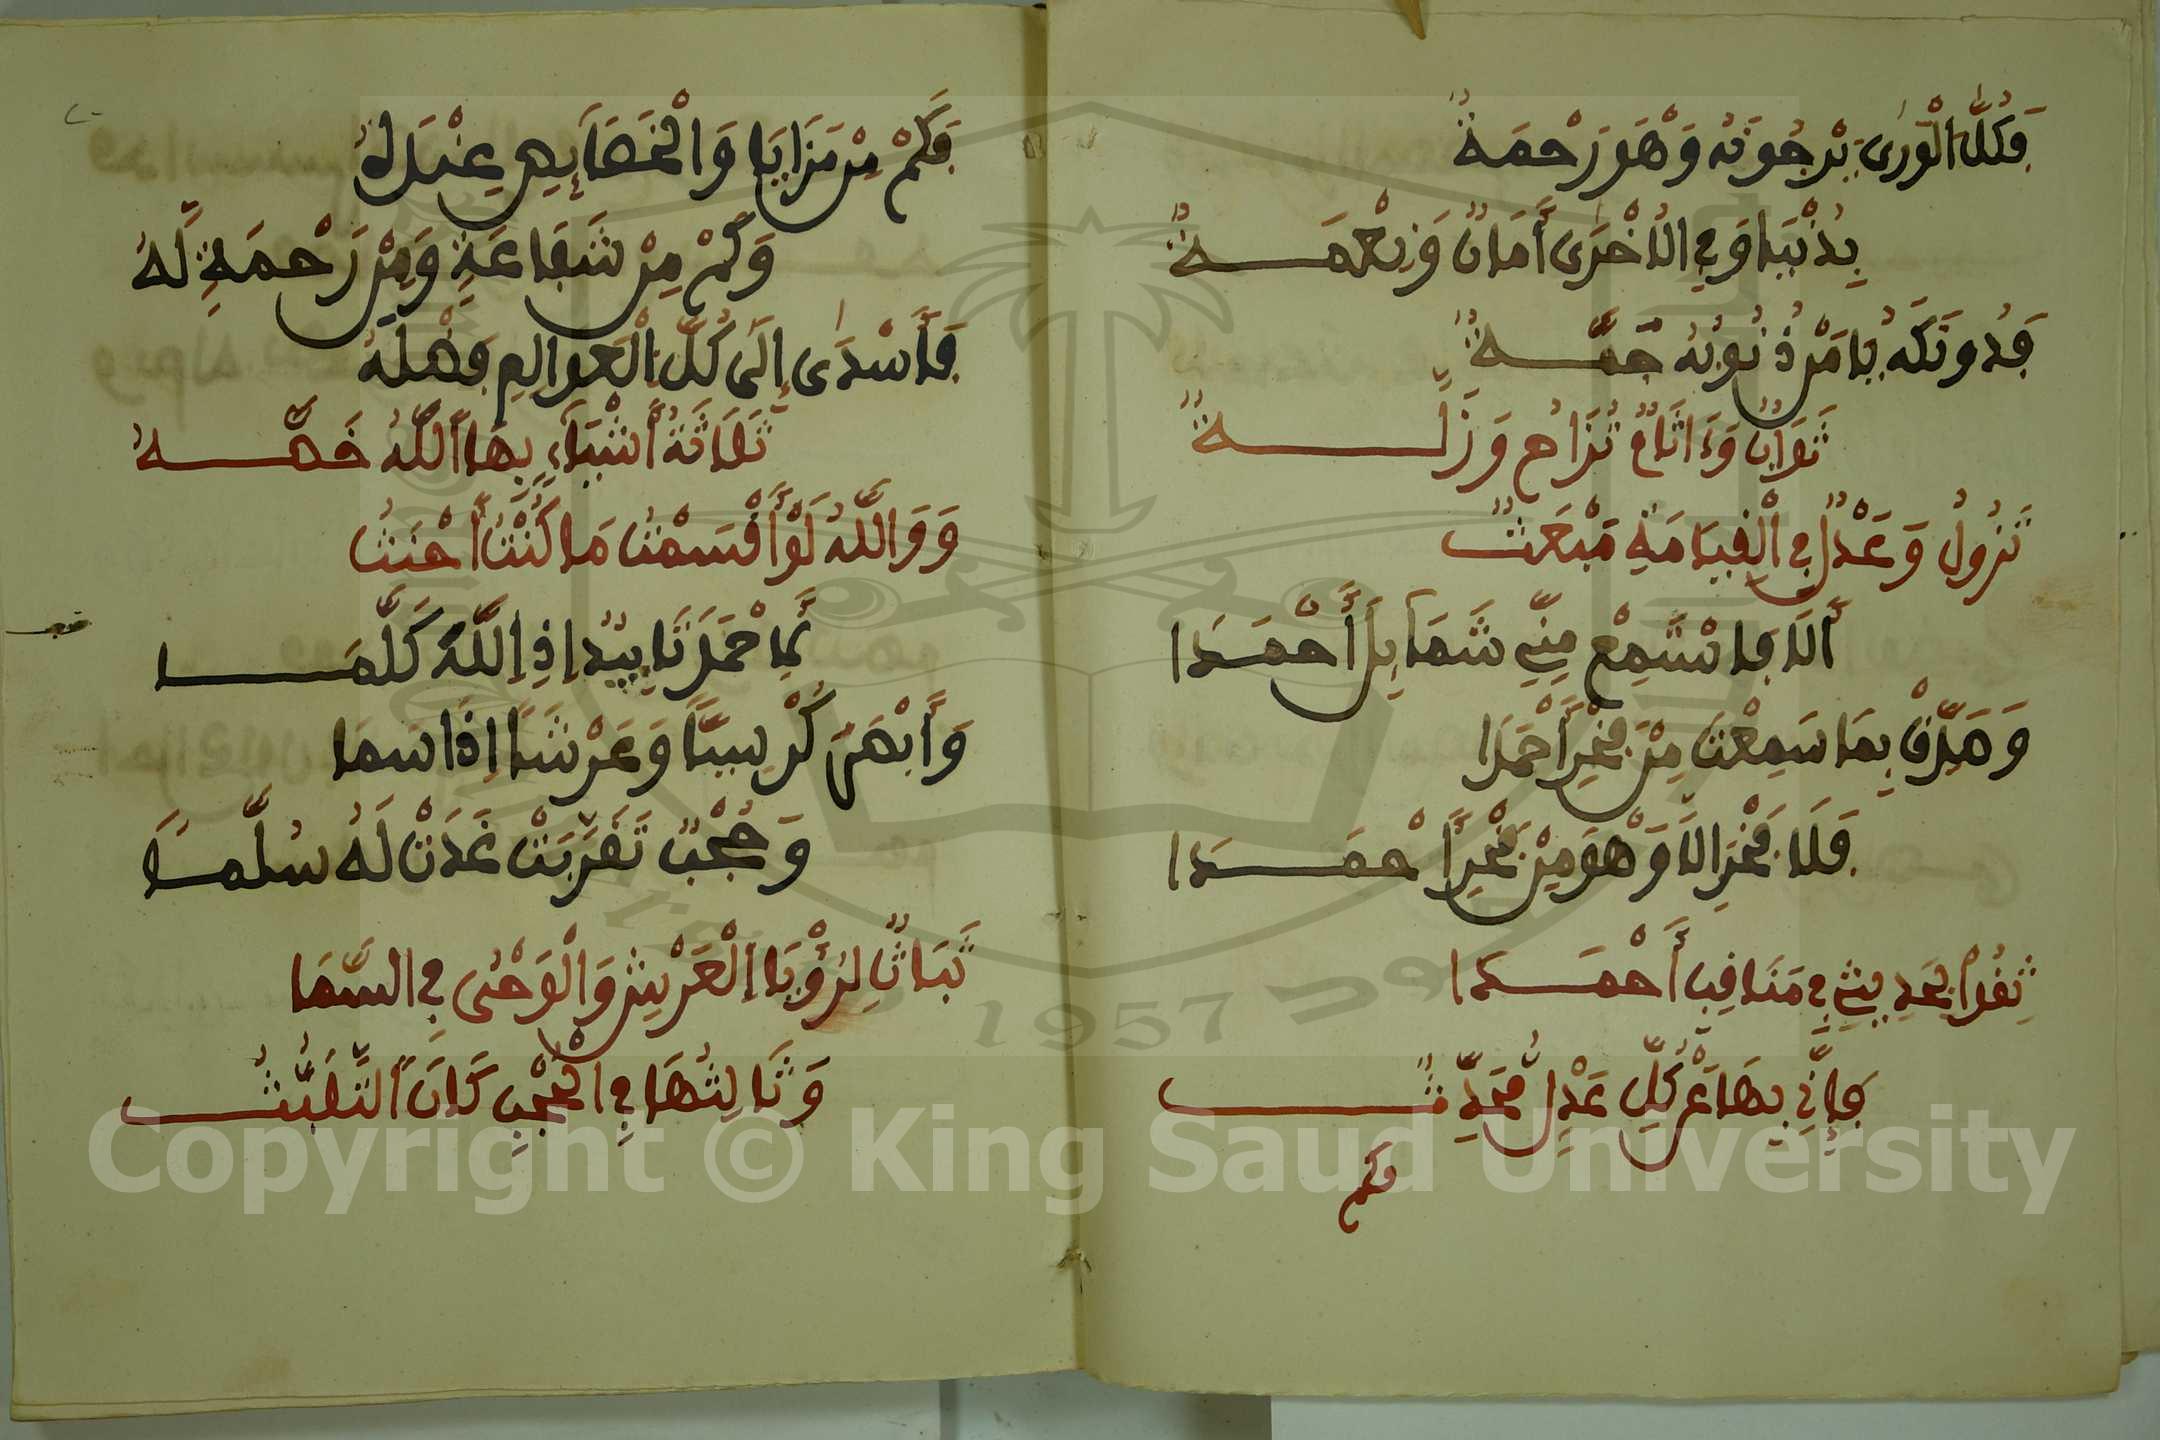 فَكُلُّ الْوَرَىٰ يَرْجُونَهُ وَهْوَ رَحْمَةٌ
بِدُنْيَا وَفِي الْأُخْرَى أَمَانٌ وَنِعْمَةٌ
فَدُونَكَهُ يَا مَنْ ذُنُوبُهُ جَمَّةٌ
ثَوَابٌ وَءَاثَامٌ تُزَاحُ وَزَلَّةٌ
تَزُولُ وَعَدْلٌ فِي الْقِيَامَةِ مَبْعَثُ
أَلَا فَاسْتَمِعْ مِنِّي شَمَايِلَ أَحْمَدَا
وَصَدِّقْ بِمَا سَمِعْتَ مِنْ فَخْرِ أَحْمَدَا
فَلَا فَخْرَ إِلَّا وَهْوَ مِنْ فَخْرِ أَحْمَدَا
ثِقُوا بِحَدِيثِي فِي مَنَاقِبِ أَحْمَدَا
فَإِنِّي بِهَا عَنْ كُلِّ عَدْلٍ مُحَدِّثُ
فكم
فَكَمْ مِنْ مَزَايَا وَالْخَصَايِصِ عِنْدَلَهُ
وَكَمْ مِنْ شَفَاعَةٍ وَمِنْ رَحْمَةٍ لَهُ
فَأَسْدَىٰ إِلَى كُلِّ الْعَوَالِمِ فَضْلَهُ
ثَلَاثَةُ أَشْيَاءٍ بِهَا اللَّهُ خَصَّهُ
وَوَاللَّهِ لَوْ أَقْسَمْتُ مَا كُنْتُ أَحْنَثُ
بِمَا حَمَلَ تَايِيدًا إِذِ اللَّهَ كَلَّمَا
وَأَبْهَى كُرْسِيًّا وَعَرْشًا إِذَا سَمَا
وَحُجْبٌ تَقَرَّبَتْ غَدَتْ لَهُ سُلَّمَا
ثَبَاتًا لِرُؤْيَا الْعَرْشِ وَالْوَحْىَ فِي السَّمَا
وَثَالِثُهَا فِي الْحُجْبِ كَانَ التَّلَبُّثُ
Copyright © King Saud University
1957